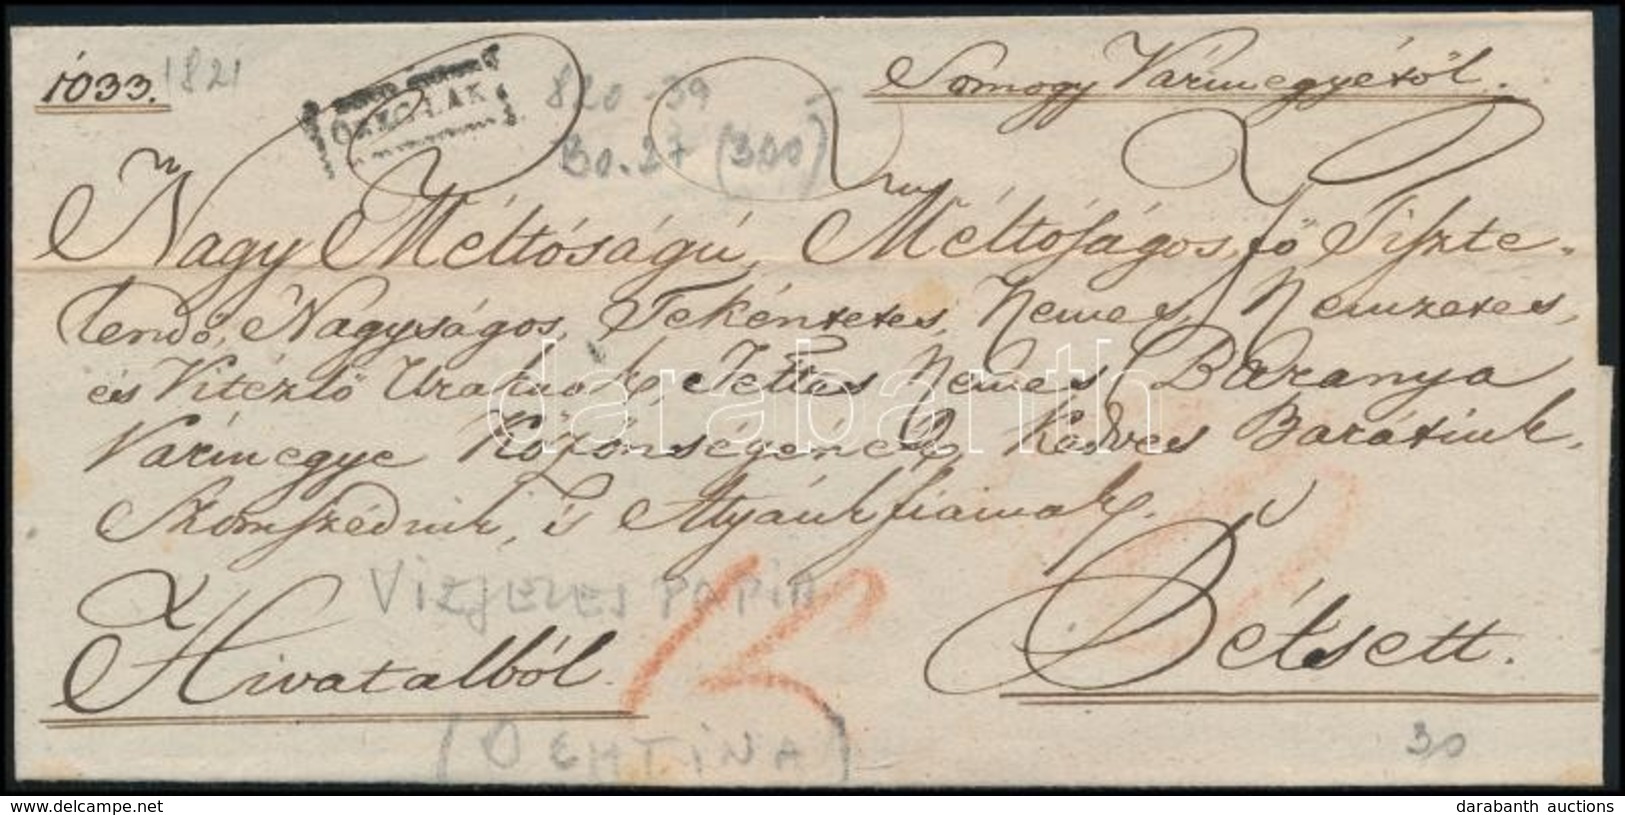 1033. 1821
ÖSZÖLLAK
820-39
Bo. 27 (300)
Somogy Vármegyétől.
Nagy Méltóságú, Méltóságos, fő Tiszte-
lendő, Nagyságos, Tekéntetes, Nemes, Nemzetes,
és Vitézlő Uraknak, Tettes Nemes Baranya
Vármegye Közönségének, Kedves Barátink,
Szomszédink, 's Atyánkfiainak.
VIZJELES PAPIR
Hivatalból.
Pétsett.
30
darabanth
darabanth auctions